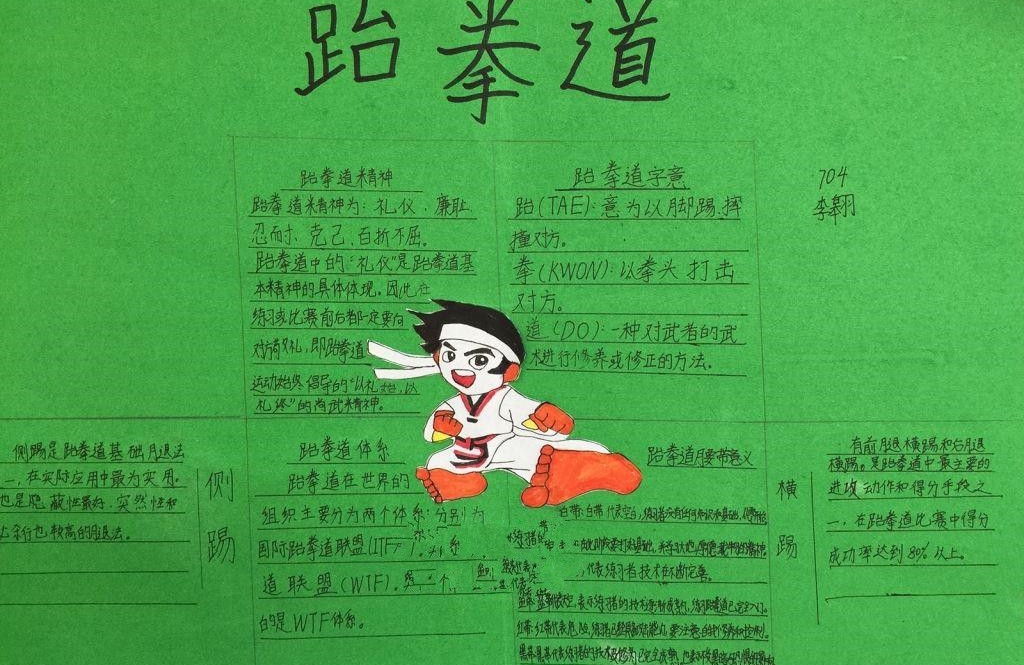 跆拳道
跆拳道精神
跆拳道精神为：礼仪、廉耻、
忍耐、克己、百折不屈。
跆拳道中的“礼仪”是跆拳道基
本精神的具体体现。因此在
练习或比赛前后都一定要向
对方敬礼，即跆拳道
运动始终倡导的“以礼始，以
礼终”的尚武精神。
跆拳道字意
跆(TAE)：意为以脚踢、摔
撞对方。
拳(KWON)：以拳头打击
对方。
道(DO)：一种对武者的武
术进行修养或修正的方法。
704
李翱
侧踢是跆拳道基础腿法
一，在实际应用中最为实用。
也是隐蔽性最好，突然性和
性也较高的腿法。
侧
踢
跆拳道体系
跆拳道在世界的
组织主要分为两个体系：分别为
国际跆拳道联盟(ITF
道联盟(WTF)。
的是WTF体系。
跆拳道腰带意义
白带：白带代表空白，练习者没有任何知识和基础，
代表练习者技术在不断完善。
红带：红带代表危险，练习者已经具备攻击能力，要注意自我修养和控制。
横
踢
有前腿横踢和后腿
横踢。是跆拳道中最主要的
进攻动作和得分手段之
一，在跆拳道比赛中得分
成功率达到80%以上。